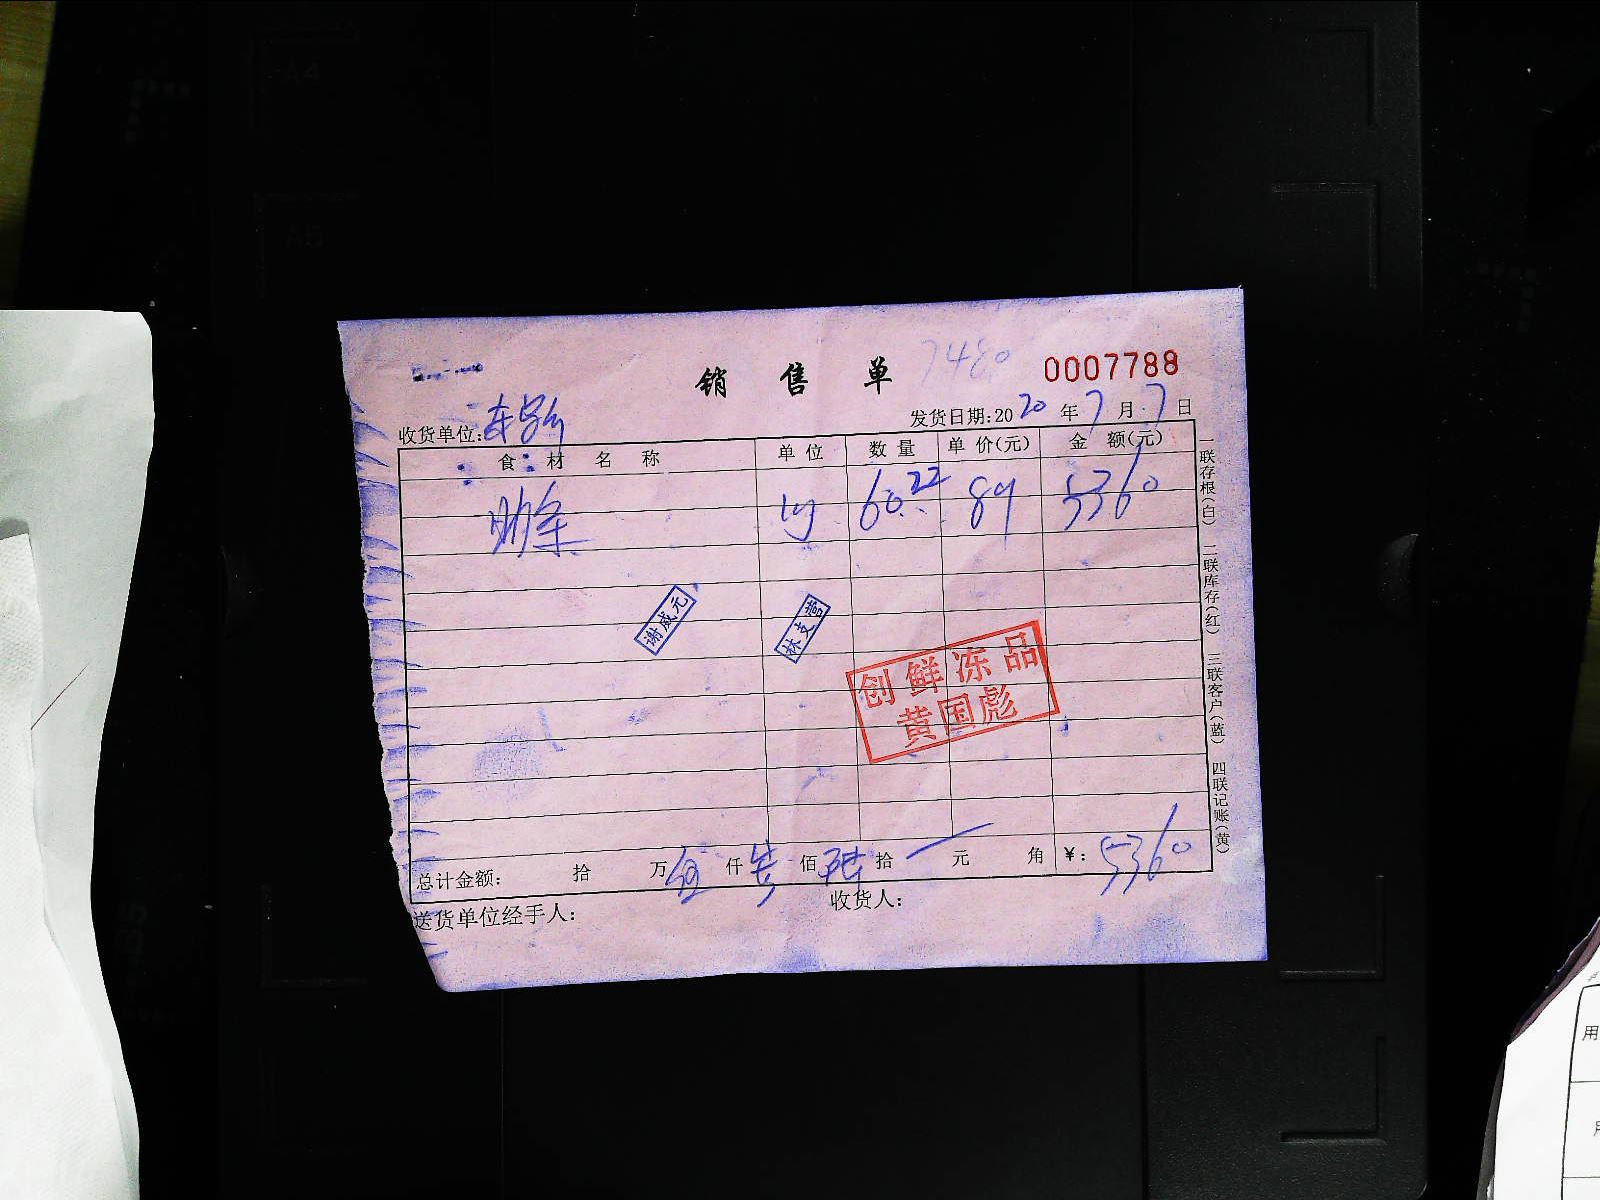 A4
A5
7480
销售单 0007788
收货单位: 发货日期:2020年7月7日
食材名称 单位 数量 单价(元) 金额(元)
肋条 kg 60.22 89 5360
谢威元
林支营
创鲜冻品
黄国彪
总计金额: 拾 万伍仟叁佰陆拾 元 角 ¥: 5360
送货单位经手人: 收货人:
一联存根(白) 二联库存(红) 三联客户(蓝) 四联记账(黄)
用